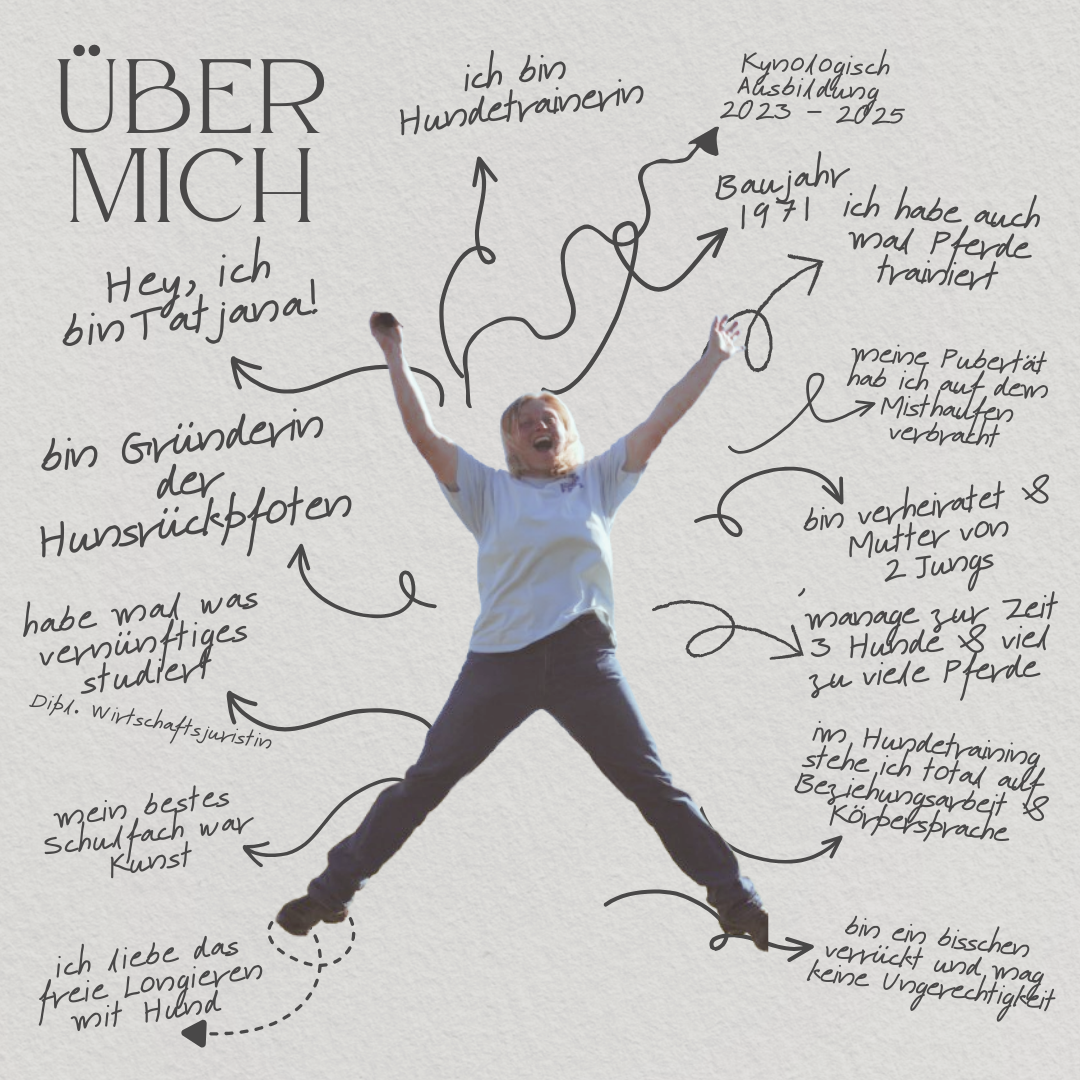 ÜBER
MICH
ich bin
Hundetrainerin
Kynologisch
Ausbildung
2023 - 2025
Baujahr
1971
ich habe auch
mal Pferde
trainiert
Hey, ich
bin Tatjana!
meine Pubertät
hab ich auf dem
Misthaufen
verbracht
bin Gründerin
der
Hunsrückpfoten
bin verheiratet &
Mutter von
2 Jungs
habe mal was
vernünftiges
studiert
Dipl. Wirtschaftsjuristin
manage zur Zeit
3 Hunde & viel
zu viele Pferde
mein bestes
Schulfach war
Kunst
im Hundetraining
stehe ich total auf
Beziehungsarbeit &
Körpersprache
ich liebe das
freie Longieren
mit Hund
bin ein bisschen
verrückt und mag
keine Ungerechtigkeit